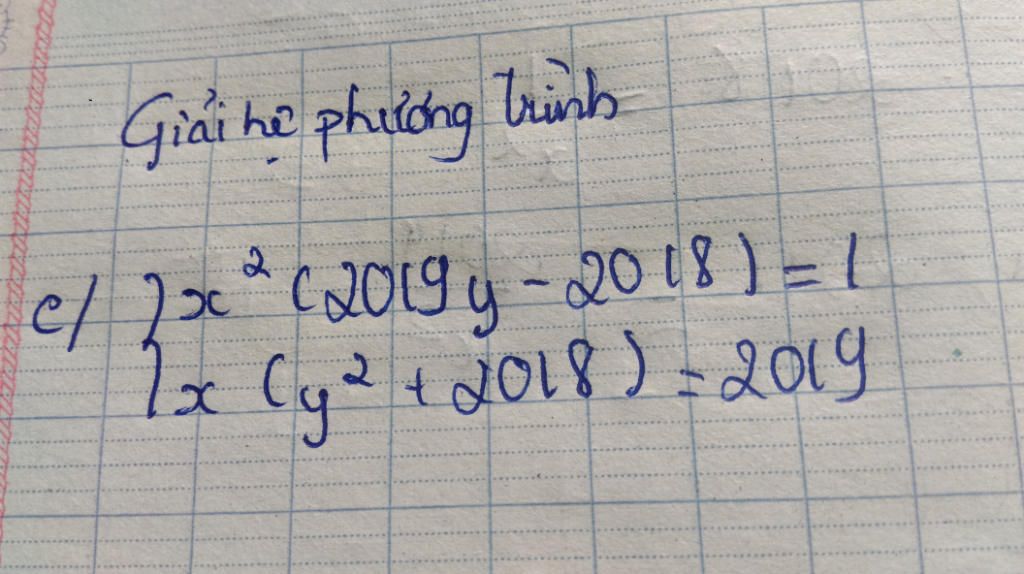 Giải hệ phương trình
c/ { x² (2019y - 2018) = 1
x (y² + 2018) = 2019